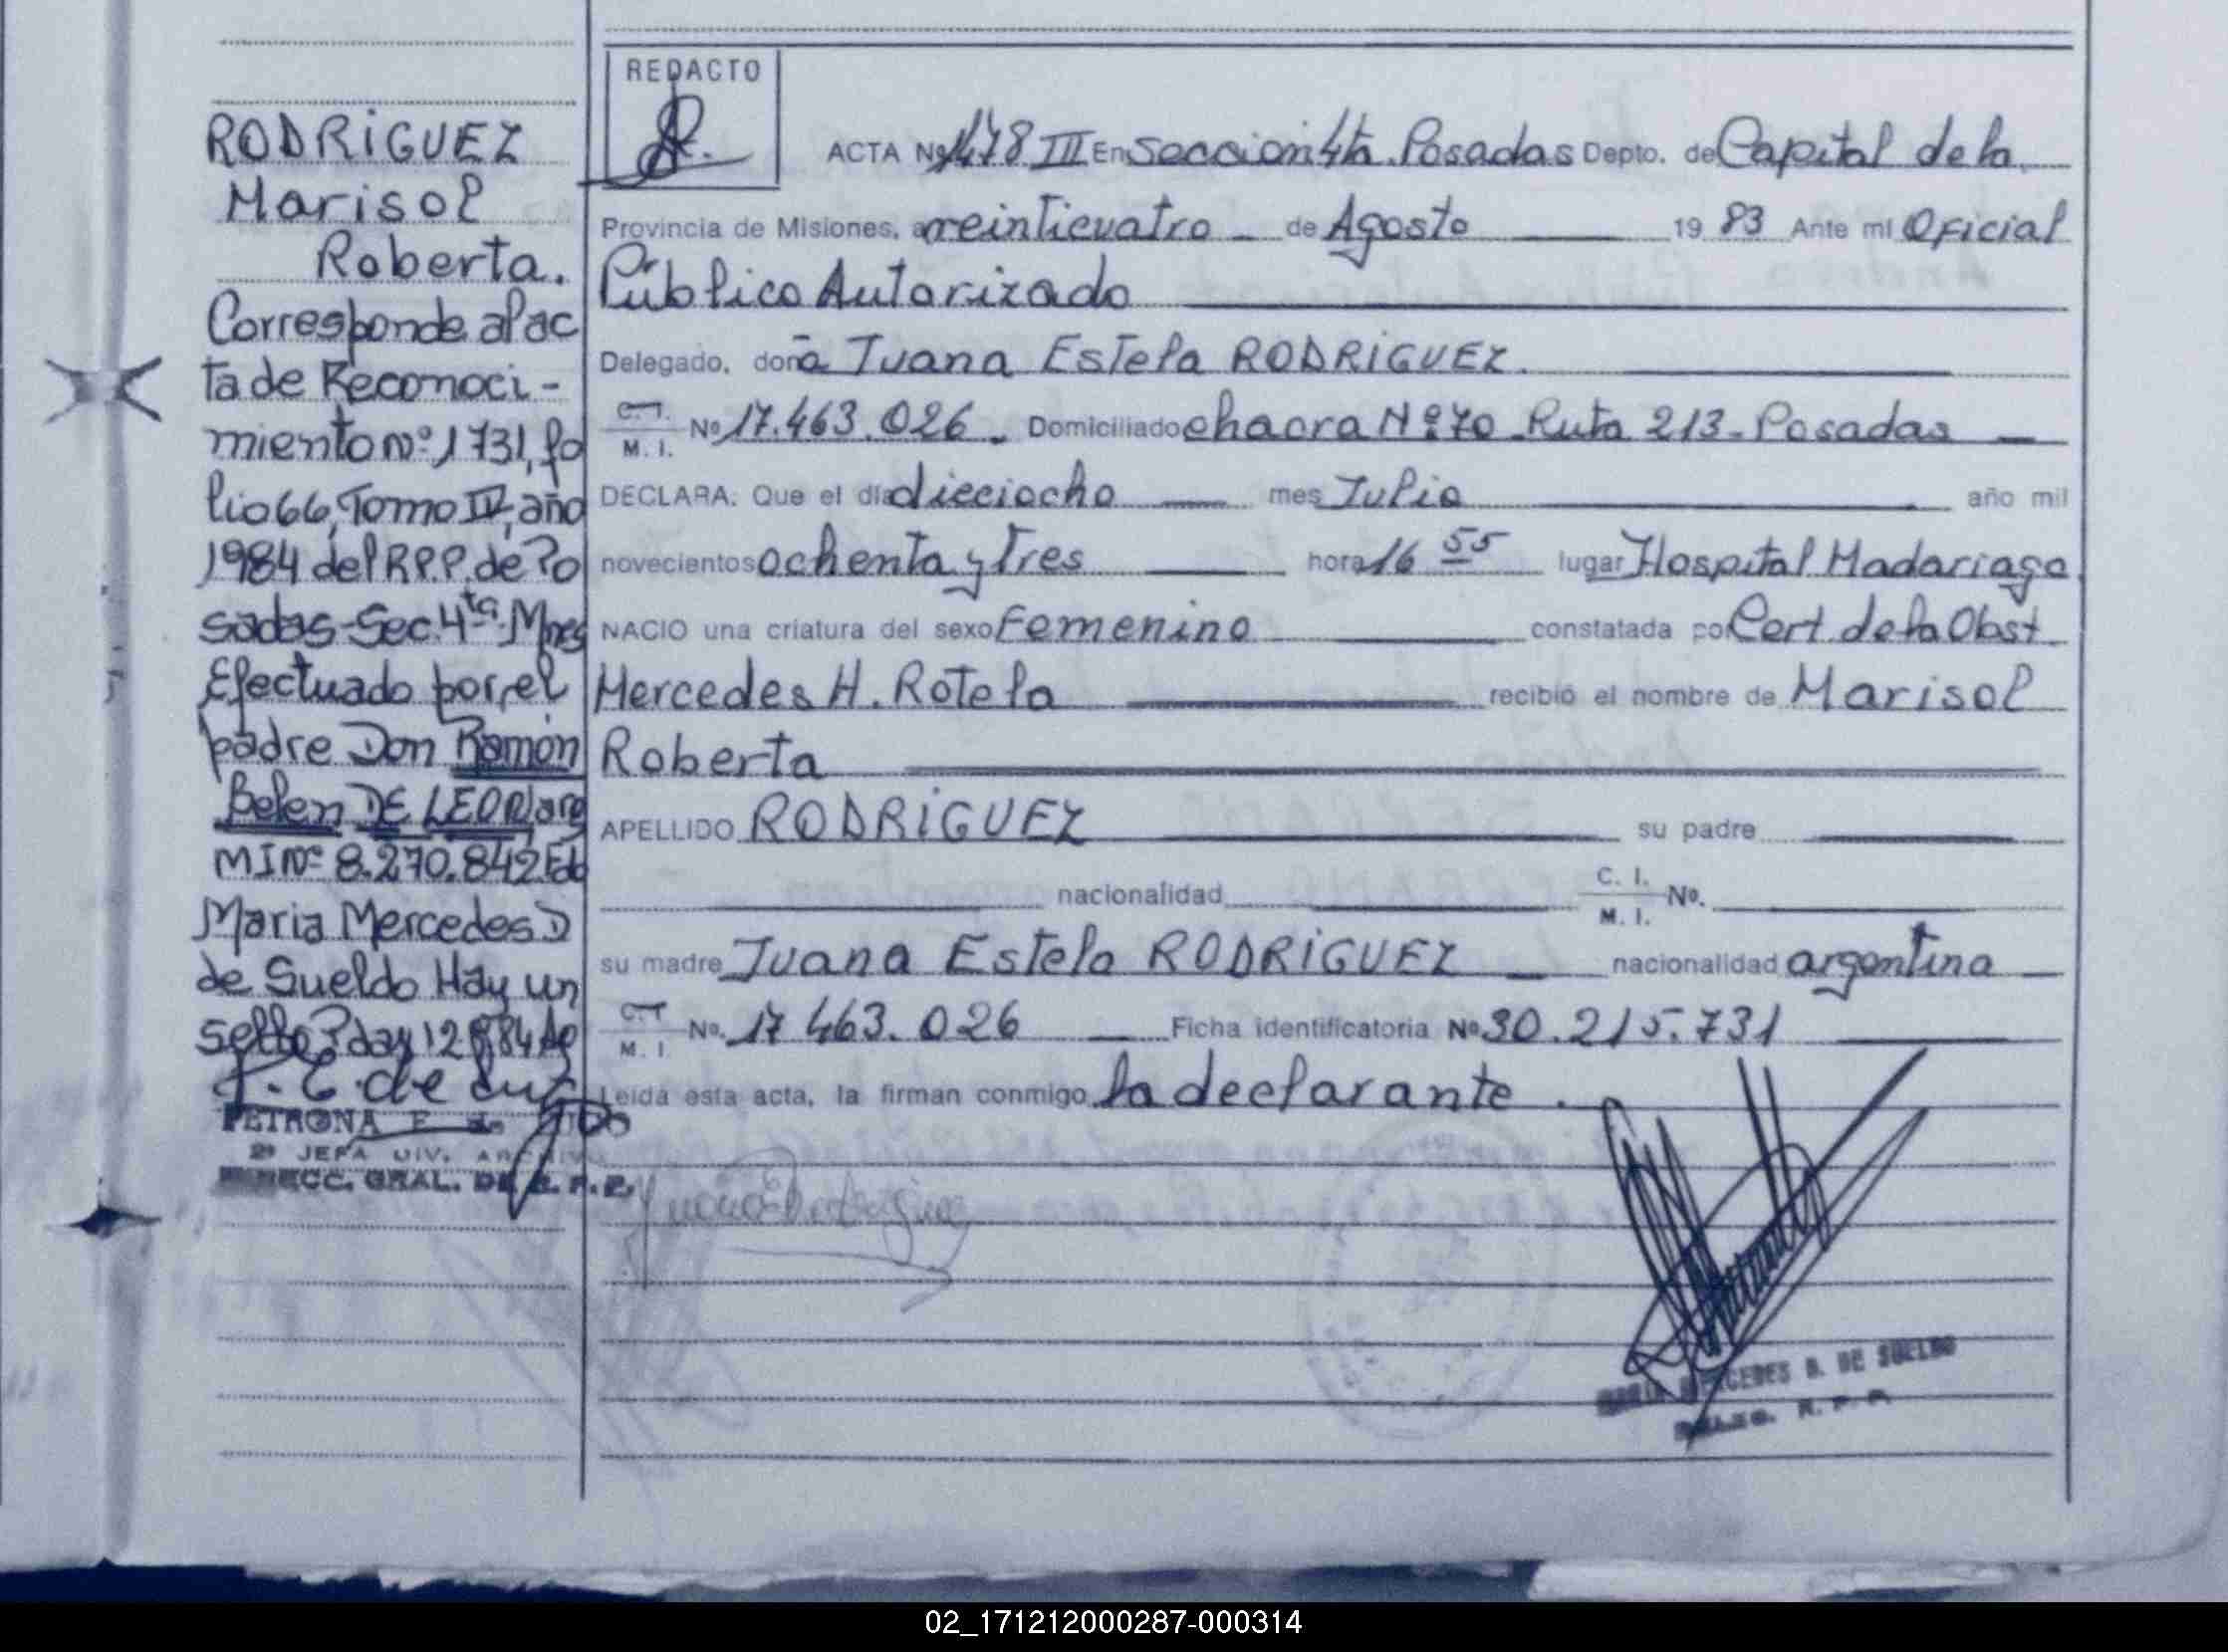 RODRIGUEZ
Marisol
Roberta.
Corresponde al ac
ta de Reconoci-
miento Nº 1731, fo
lio 66, Tomo IV, año
1984 del R.P.P. de Po
sadas-Sec. 4ta Mnes
Efectuado por, el
padre Don Ramón
Belen DE LEON arg
MI Nº 8.270.842 Fdo
Maria Mercedes D
de Sueldo Hay un
sello
PETRONA E.
2ª JEFA DIV. ARCHIVO
DIRECC. GRAL. DE R. P. P.
REDACTO
ACTA Nº 1478 III En Seccion 4ta. Posadas Depto. de Capital de la
Provincia de Misiones, a veinticuatro de Agosto 19 83 Ante mi Oficial
Público Autorizado
Delegado, doña Juana Estela RODRIGUEZ.
C.I. M. I. Nº 17.463.026. Domiciliado chacra Nº 70 - Ruta 213 - Posadas
DECLARA: Que el día dieciocho mes Julio año mil
novecientos ochenta y Tres hora 16 55 lugar Hospital Madariaga
NACIO una criatura del sexo Femenino constatada por Cert. de la Obst
Mercedes H. Rotela recibió el nombre de Marisol
Roberta
APELLIDO RODRIGUEZ su padre
nacionalidad C. I. M. I. Nº.
su madre Juana Estela RODRIGUEZ nacionalidad argentina
C.I. M. I. Nº. 17 463.026 Ficha identificatoria Nº 30.215.731
Leída esta acta, la firman conmigo la declarante.
MARIA MERCEDES D. DE SUELDO
DELEG. R. P. P.
02_171212000287-000314